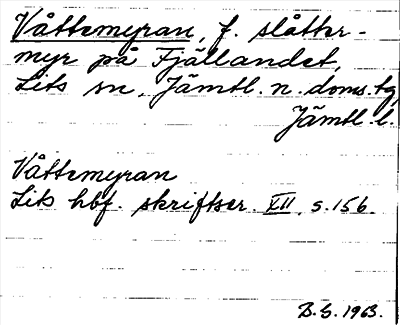 Våttemyran, f. slåtter-
myr på Fjällandet,
Lits sn, Jämtl. n. doms. tg,
Jämtl. l.
Våttemyran
Lits hbf. skriftser. XII, s. 156.
B.G. 1963.